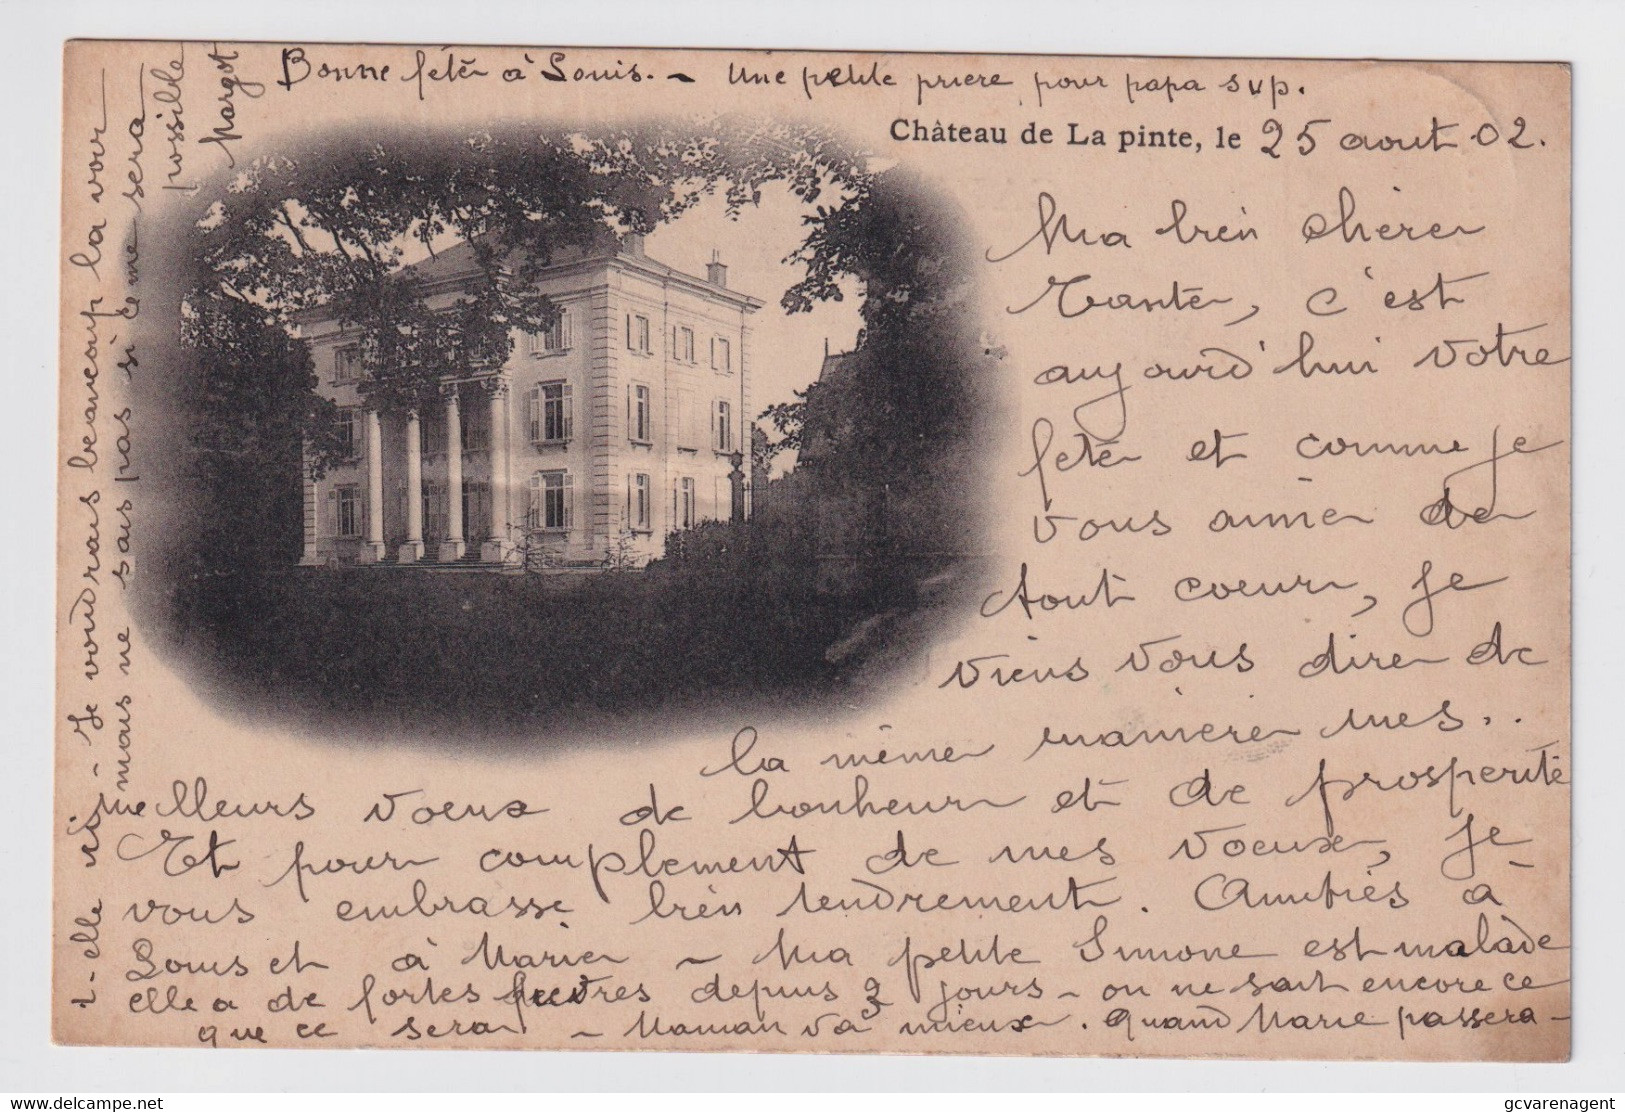 Bonne fête à Louis. - Une petite priere pour papa svp.
Château de La pinte, le 25 aout 02.
Ma bien chère
Tante, c'est
aujourd'hui votre
fête et comme je
vous aime de
tout coeur, je
viens vous dire de
la même manière mes..
meilleurs voeux de bonheur et de prosperité
Et pour complement de mes voeux, je
vous embrasse bien tendrement. Amitiés à
Louis et à Marie - Ma petite Simone est malade
elle a de fortes fievres depuis 3 jours - on ne sait encore ce
que ce sera - Maman va mieux. Quand Marie passera-
t-elle ici - Je voudrais beaucoup la voir
mais ne sais pas si ce me sera
possible
Margot
https://www.delcampe.net
gcvarenagent